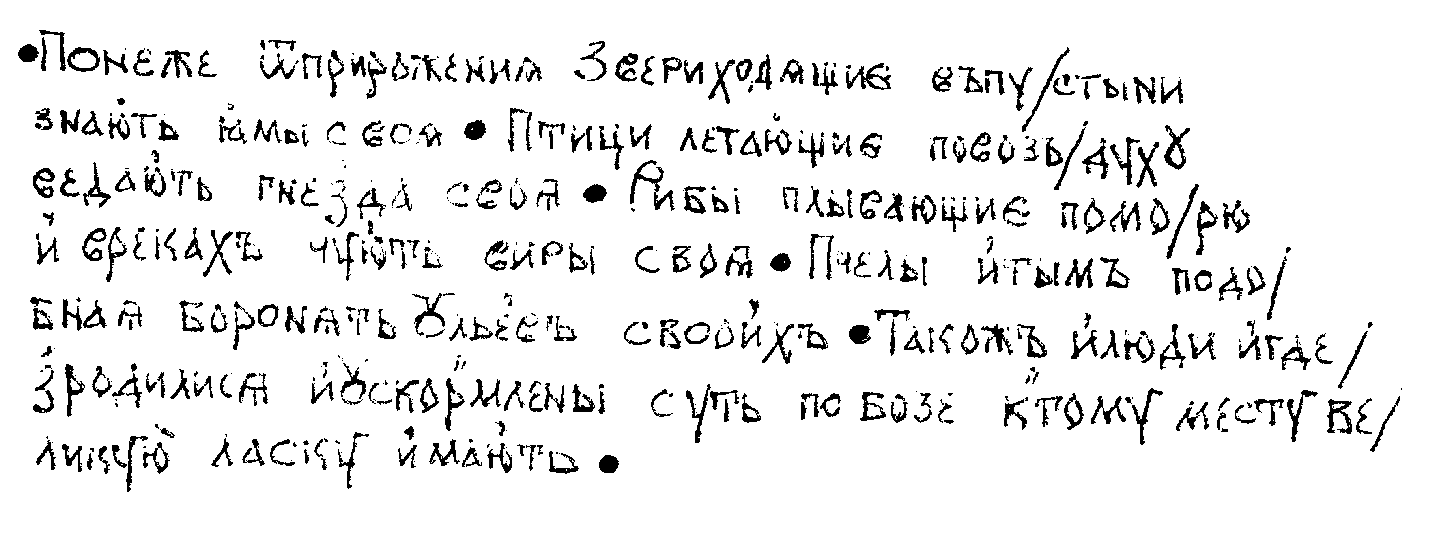 •Понеже ѿприрожения Звериходѧщиє въпу/стыни
знаю́ть ꙗ́мы своѧ • Птици летаю́щиє повозъ/духꙋ
ведаю́ть гнезда своѧ • Рибы плываюшиє помо/рю
и́ врекахъ чую́ть виры своѧ • Пчелы и́тымъ подо/
бнаѧ боронѧть ꙋльевъ своихъ • Такожъ и́люди и́где/
зродилисѧ и́ꙋскормлены суть по бозе ктому месту ве/
ликую ласку и́мають •